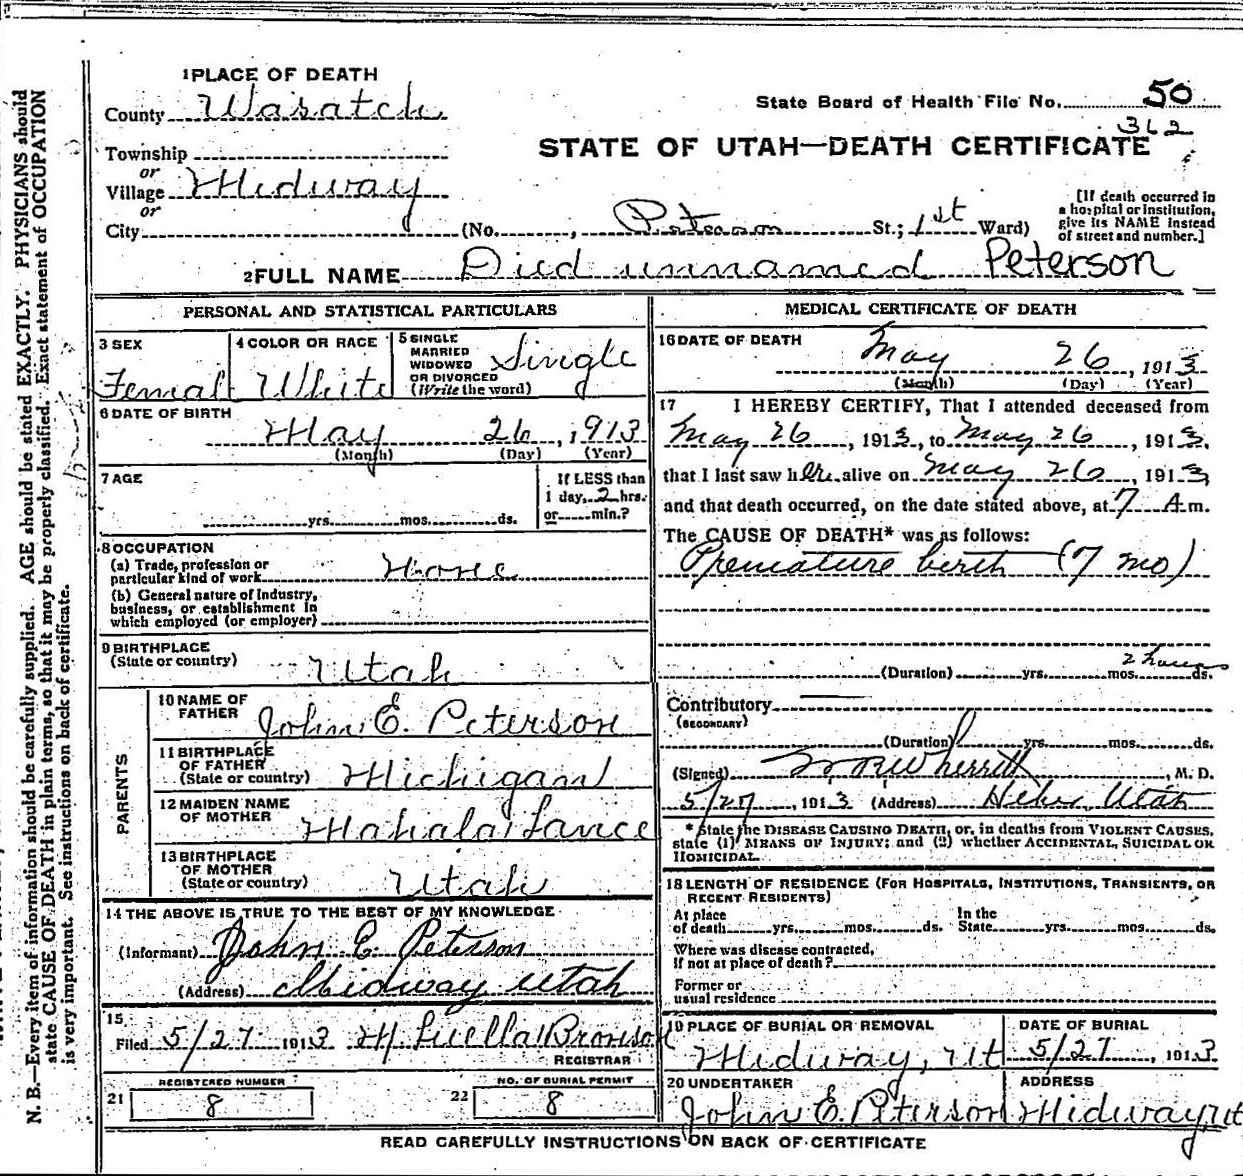 1 PLACE OF DEATH
County Wasatch
State Board of Health File No. 50
362
Township
STATE OF UTAH—DEATH CERTIFICATE
or
Village Midway
or
City (No. , Peterson St.; 1st Ward)
[If death occurred in
a hospital or institution,
give its NAME instead
of street and number.]
2 FULL NAME Died unnamed Peterson
PERSONAL AND STATISTICAL PARTICULARS
3 SEX
Female
4 COLOR OR RACE
White
5 SINGLE
MARRIED
WIDOWED
OR DIVORCED
(Write the word)
Single
6 DATE OF BIRTH
May 26, 1913
(Month) (Day) (Year)
7 AGE
yrs. mos. ds.
If LESS than
1 day, 2 hrs.
or min.?
8 OCCUPATION
(a) Trade, profession or
particular kind of work None
(b) General nature of Industry,
business, or establishment in
which employed (or employer)
9 BIRTHPLACE
(State or country) Utah
PARENTS
10 NAME OF
FATHER John E. Peterson
11 BIRTHPLACE
OF FATHER
(State or country) Michigan
12 MAIDEN NAME
OF MOTHER Mahala
13 BIRTHPLACE
OF MOTHER
(State or country) Utah
14 THE ABOVE IS TRUE TO THE BEST OF MY KNOWLEDGE
(Informant) John E. Peterson
(Address) Midway Utah
15
Filed 5/27 1913 M Luella Bronson
REGISTRAR
REGISTERED NUMBER
21 8
NO. OF BURIAL PERMIT
22 8
MEDICAL CERTIFICATE OF DEATH
16 DATE OF DEATH
May 26, 1913
(Month) (Day) (Year)
17 I HEREBY CERTIFY, That I attended deceased from
May 26, 1913, to May 26, 1913,
that I last saw her alive on May 26, 1913,
and that death occurred, on the date stated above, at 7 A m.
The CAUSE OF DEATH* was as follows:
Premature birth (7 mo)
2 hours
(Duration) yrs. mos. ds.
Contributory
(SECONDARY)
(Duration) yrs. mos. ds.
(Signed) Wherritt, M. D.
5/27, 1913 (Address) Heber, Utah
* State the DISEASE CAUSING DEATH, or, in deaths from VIOLENT CAUSES,
state (1) MEANS OF INJURY; and (2) whether ACCIDENTAL, SUICIDAL OR
HOMICIDAL.
18 LENGTH OF RESIDENCE (FOR HOSPITALS, INSTITUTIONS, TRANSIENTS, OR
RECENT RESIDENTS)
At place
of death yrs. mos. ds.
In the
State yrs. mos. ds.
Where was disease contracted,
if not at place of death?
Former or
usual residence
19 PLACE OF BURIAL OR REMOVAL
Midway, Ut
DATE OF BURIAL
5/27, 1913
20 UNDERTAKER
John E. Peterson
ADDRESS
Midway, Ut
READ CAREFULLY INSTRUCTIONS ON BACK OF CERTIFICATE
N. B.—Every item of information should be carefully supplied. AGE should be stated EXACTLY. PHYSICIANS should
state CAUSE OF DEATH in plain terms, so that it may be properly classified. Exact statement of OCCUPATION
is very important. See instructions on back of certificate.